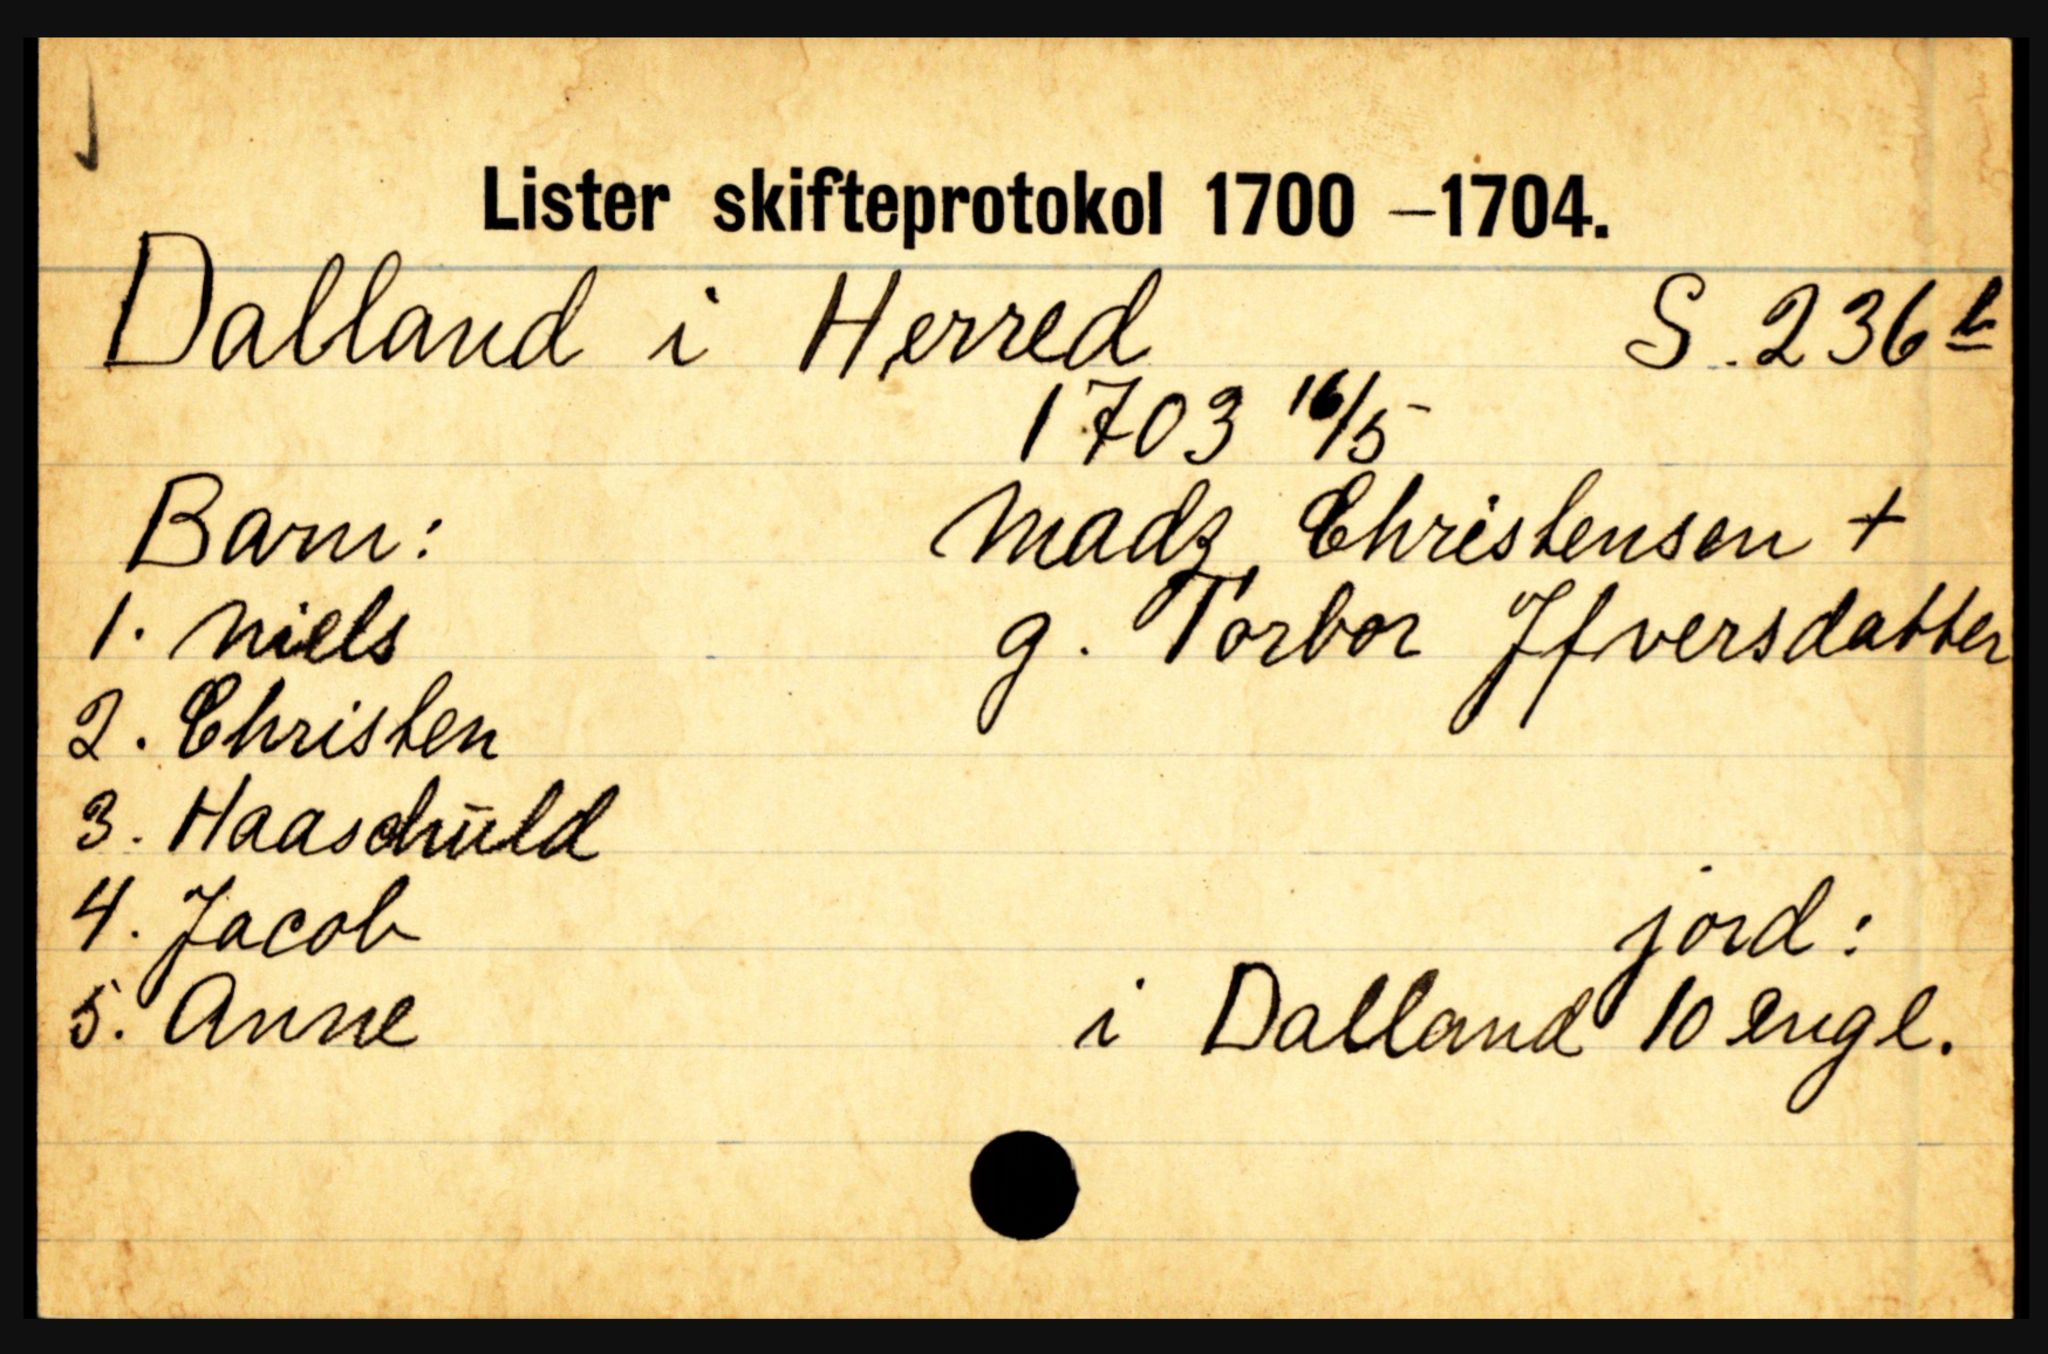 Lister skifteprotokol 1700 – 1704.
Dalland i Herred S. 236 b
1703 16/5
Barn: Madz Christensen +
1. Niels g. Torbor Jfversdatter
2. Christen
3. Haaschuld
4. Jacob jord:
5. Anne i Dalland 10 engl.